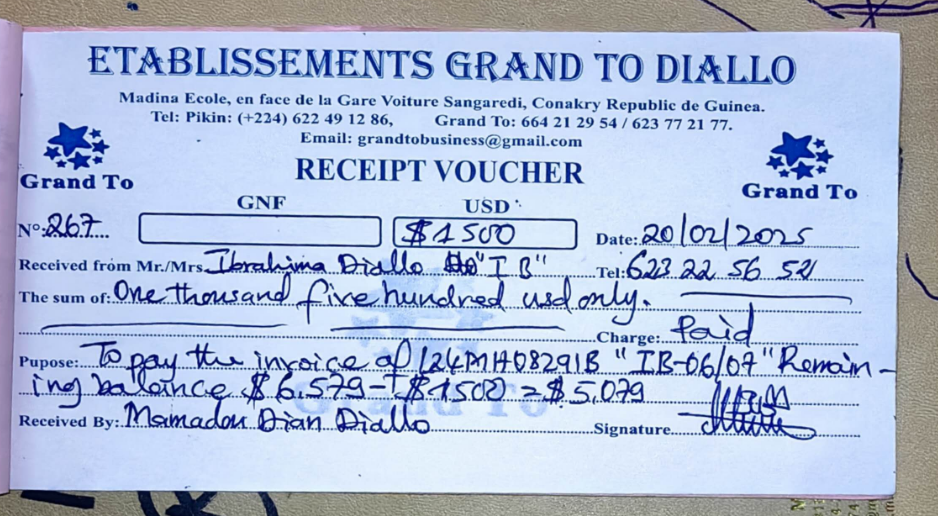 ETABLISSEMENTS GRAND TO DIALLO
Madina Ecole, en face de la Gare Voiture Sangaredi, Conakry Republic de Guinea.
Tel: Pikin: (+224) 622 49 12 86, Grand To: 664 21 29 54 / 623 77 21 77.
Email: grandtobusiness@gmail.com
Grand To RECEIPT VOUCHER Grand To
GNF USD
Nº: 267 $1500 Date: 20/02/2025
Received from Mr./Mrs Ibrahima Diallo "IB" Tel: 623 22 56 52
The sum of: One thousand five hundred usd only.
Charge: Paid
Pupose: To pay the invoice of "IB-06/07" Remain-
ing balance $6.579 - $1500 = $5.079
Received By: Mamadou Dian Diallo Signature